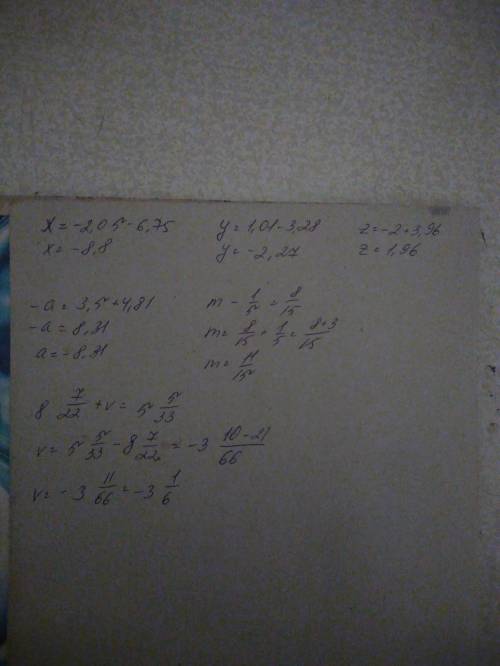 x = -2,05 - 6,75
x = -8,8
y = 1,01 - 3,28
y = -2,27
z = -2 + 3,96
z = 1,96
-a = 3,5 + 4,81
-a = 8,31
a = -8,31
m - 1/5 = 8/15
m = 8/15 + 1/5 = 8+3/15
m = 11/15
8 7/22 + v = 5 5/33
v = 5 5/33 - 8 7/22 = -3 10-21/66
v = -3 11/66 = -3 1/6